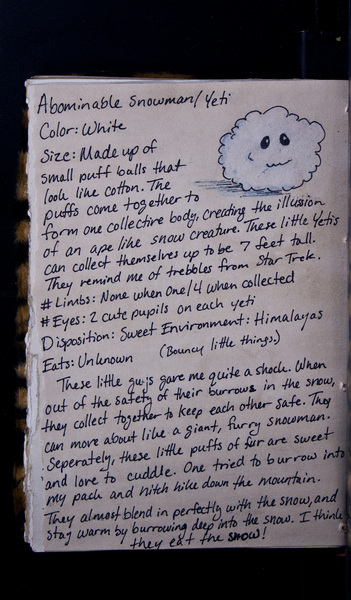 Abominable Snowman/Yeti
Color: White
Size: Made up of
small puff balls that
look like cotton. The
puffs come together to
form one collective body, creating the illusion
of an ape like snow creature. These little Yetis
can collect themselves up to be 7 feet tall.
They remind me of trebbles from Star Trek.
# Limbs: None when One/4 when collected
# Eyes: 2 cute pupils on each yeti
Disposition: Sweet Environment: Himalayas
Eats: Unknown (Bouncy little things.)
These little guys gave me quite a shock. When
out of the safety of their burrows in the snow,
they collect together to keep each other safe. They
can more about like a giant, furry snowman.
Seperately, these little puffs of fur are sweet
and love to cuddle. One tried to burrow into
my pack and hitch hike down the mountain.
They almost blend in perfectly with the snow, and
stay warm by burrowing deep into the snow. I think
they eat the snow!